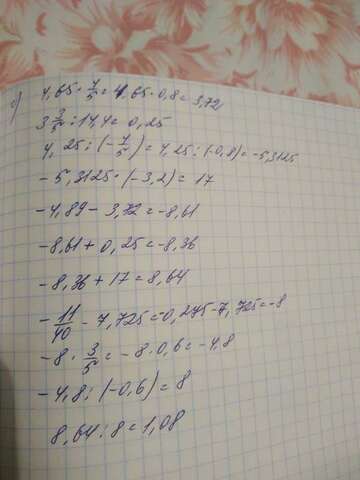 c) 4,65 · 4/5 = 4,65 · 0,8 = 3,72
3 3/5 : 14,4 = 0,25
4,25 : (-4/5) = 4,25 : (-0,8) = -5,3125
-5,3125 · (-3,2) = 17
-4,89 - 3,72 = -8,61
-8,61 + 0,25 = -8,36
-8,36 + 17 = 8,64
-11/40 - 7,725 = -0,275 - 7,725 = -8
-8 · 3/5 = -8 · 0,6 = -4,8
-4,8 : (-0,6) = 8
8,64 : 8 = 1,08